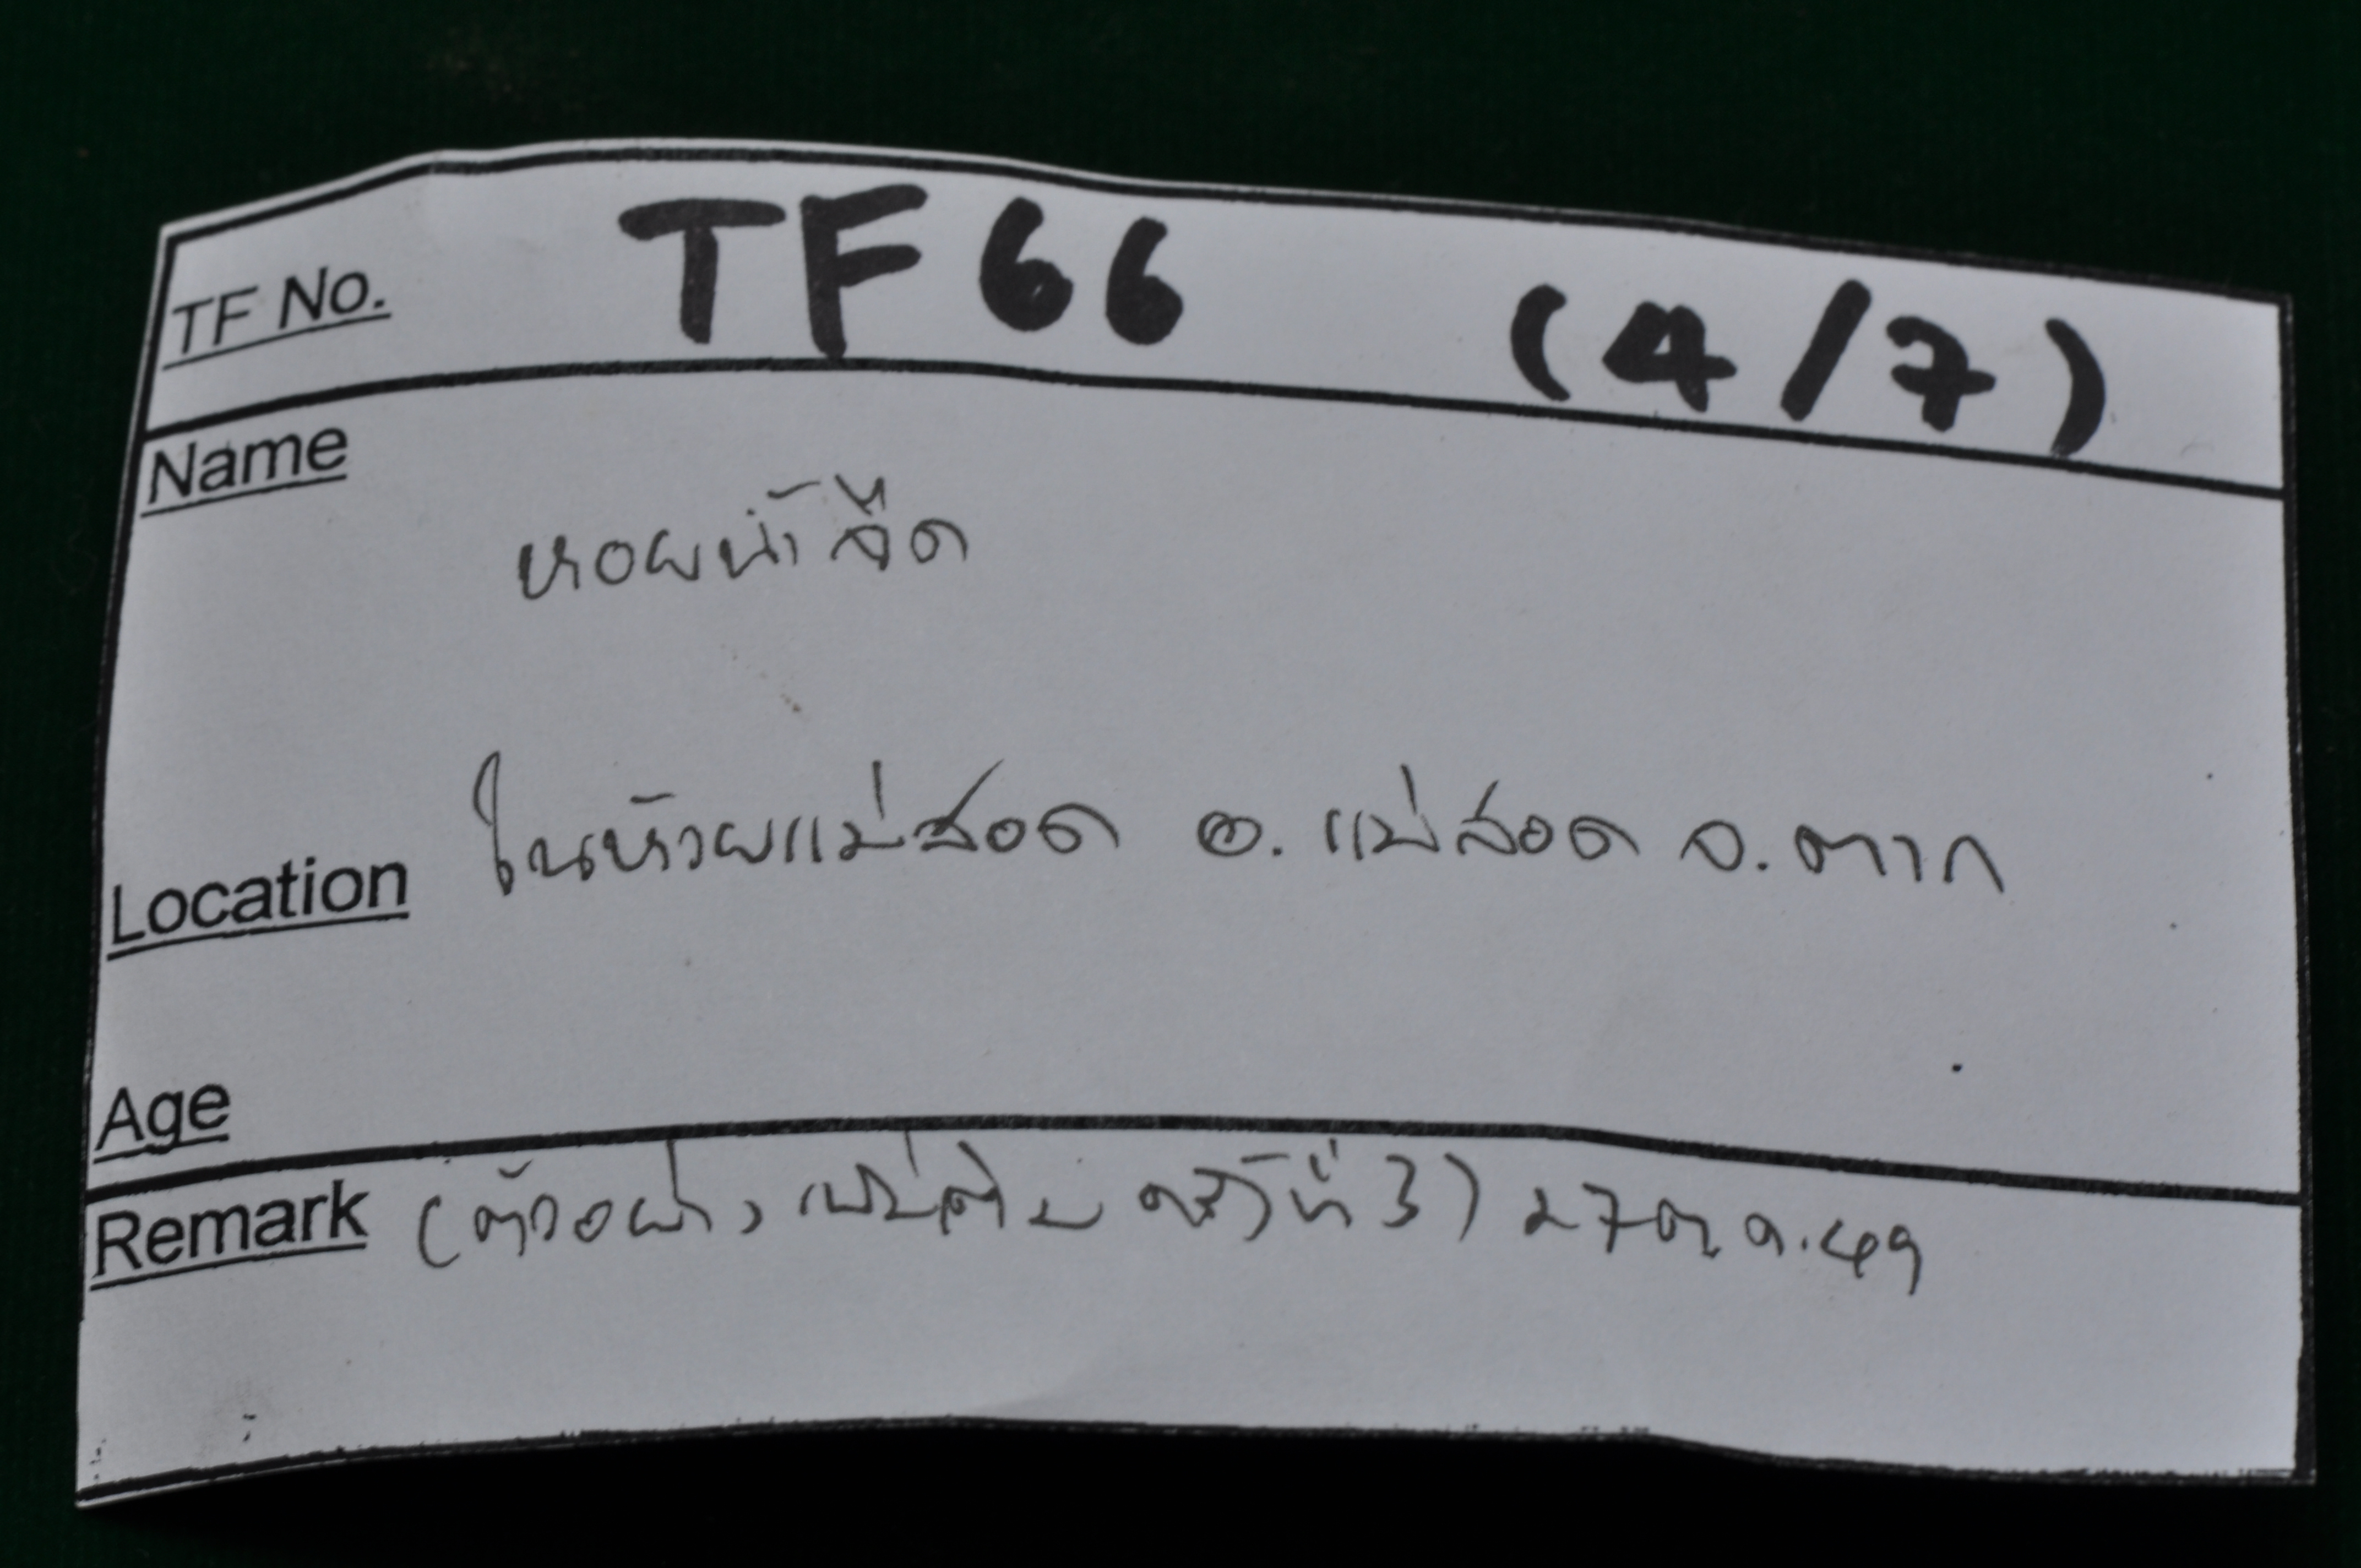 TF No. TF66 (4/7)
Name
หอยน้ำจืด
Location ในห้วยแม่สอด อ.แม่สอด จ.ตาก
Age
Remark (ตัวอย่างเพิ่มเติม ครั้งที่ 3) 27 ต.ค.49